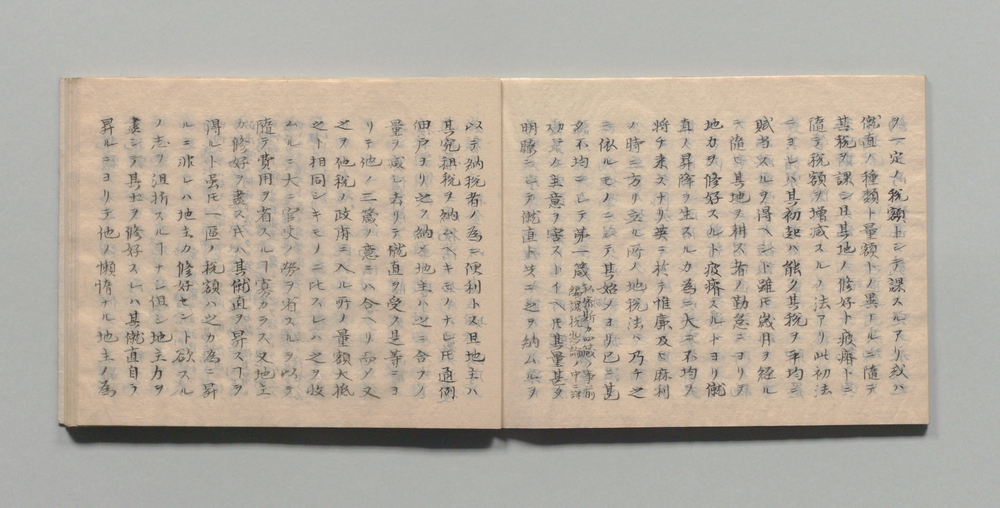 ヲ一定ノ税額トシテ課スルアリ或ハ
僦直ノ種類ト量額トノ異ナルニ随テ
其税ヲ課シ且其地ノ修好ト疲瘠トニ
随テ税額ヲ増減スルノ法アリ此初法
ニヨレハ其初起ハ能ク其税ヲ平均シ
賦当スルヲ得ヘシト雖𪜈歳月ヲ経ル
ニ随ヒ其地ヲ耕ス者ノ勤怠ニヨリテ
地力ヲ修好スルト疲瘠スルトヨリ僦
直ノ昇降ヲ生スルカ為ニ大ニ不均ヲ
将チ来スナリ英ニ於テ惟廉及ヒ麻利
ノ時ニ方リ立ル所ノ地税法ハ乃チ之
ニ依ルモノニシテ其始メヨリ已ニ甚
タ不均ニシテ第一箴
ノ主意ヲ害スト𪜈其量甚タ
明瞭ニシテ僦直ト共ニ之ヲ納ムルヲ
以テ納税者ノ為ニ便利トス且地主ハ
其宛租税ヲ納ムヘキモノナレ𪜈通例
佃戸ヨリ之ヲ納メ地主ハ之ニ合フノ
量ヲ減シ去リテ僦直ヲ受ク是等ニヨ
リテ他ノ二箴ノ意ニハ合ヘリ而メ又
之ヲ他税ノ政府ニ入ル所ノ量額大抵
之ト相同シキモノニ比スレハ之ヲ收
ムルニ大ニ官吏ノ労ヲ省スルヲ以テ
随テ費用ヲ省スルヿ寡カラス又地主
カ修好ヲ盡ス𪜈其僦直ヲ昇スヿヲ
得ルト虽𪜈一區ノ税額ハ之カ為ニ昇
ルニ非レハ地主カ修好セント欲スル
ノ志ヲ沮折スルヿナシ但シ地主力ヲ
盡シテ其土ヲ修好スレハ其僦直自ラ
昇ルニヨリテ他ノ懶惰ナル地主ノ為